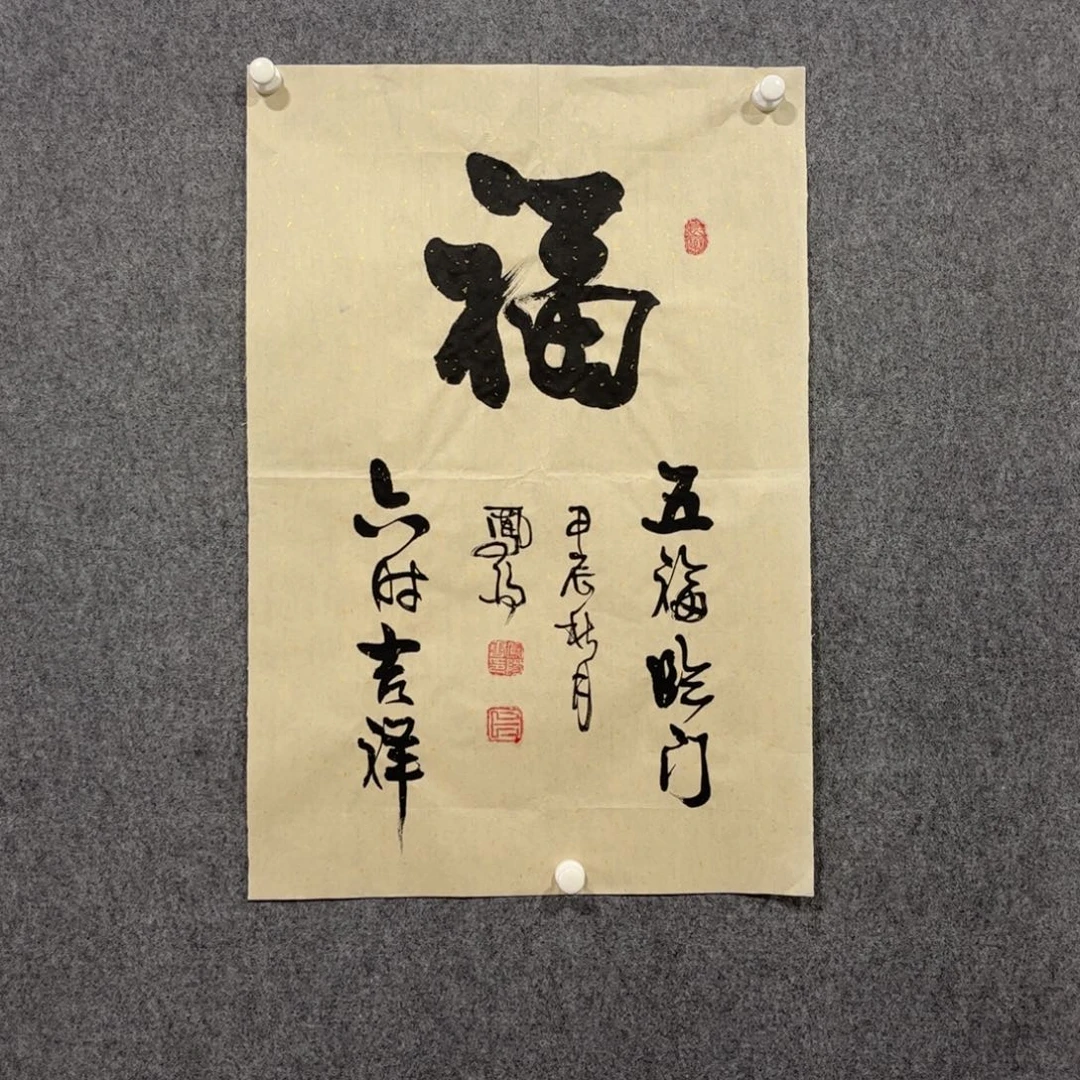 福
五福临门
甲辰秋月
六时吉祥